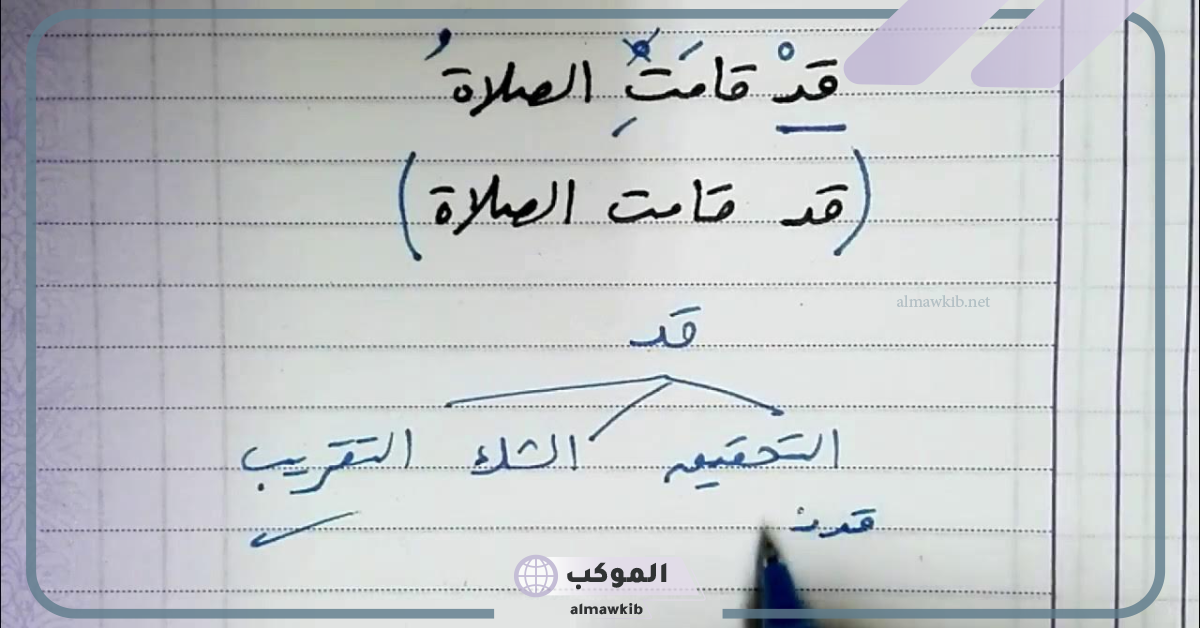 قدْ قامَتِ الصلاةُ
(قد قامت الصلاة)
almawkib.net
قد
التحقيق الشك التقريب
الموكب
almawkib